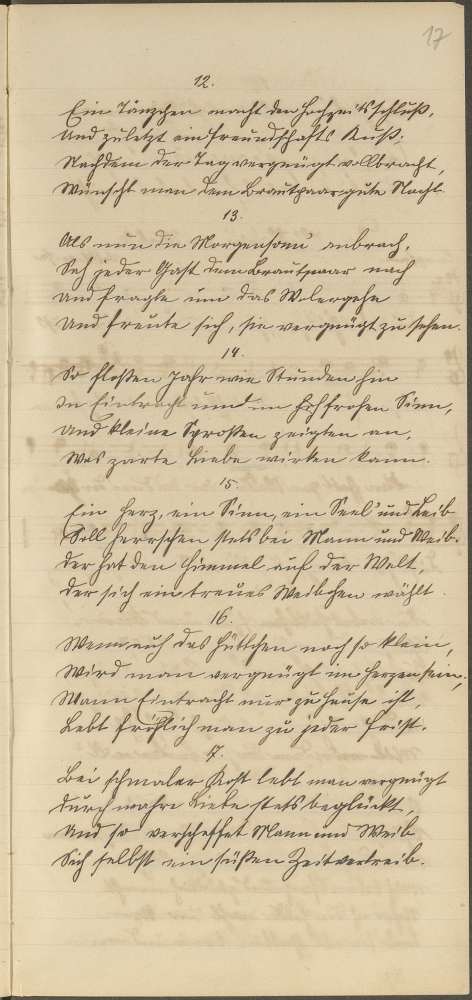 17
12.
Ein Tänzchen macht den Hochzeitsschluß,
Und zuletzt ein Freundschafts Kuß;
Nachdem der Tag vergnügt vollbracht,
Wünscht man dem Brautpaar gute Nacht.
13.
Als nun die Morgensonn' anbrach,
Sah jeder Gast dem Brautpaar nach
Und fragte um das Wolergehn
Und freute sich, sie vergnügt zu sehen.
14.
So floßen Jahr wie Stunden hin
In Eintracht und im frohen Sinn,
Und kleine Sproßen zeigten an,
Was zarte Liebe wirken kann.
15.
Ein Herz, ein Sinn, ein Seel' und Leib
Soll herrschen stets bei Mann und Weib.
Der hat den Himmel auf der Welt,
Der sich ein treues Weibchen wählt.
16.
Wenn auch das Hüttchen noch so klein,
Wird man vergnügt im Herzen sein;
Wann Eintracht nur zu Hause ist,
Lebt fröhlich man zu jeder Frist.
7.
Bei schmaler Kost lebt man vergnügt
Durch wahre Liebe stets beglückt,
Und so verschaffet Mann und Weib
Sich selbst ein süßen Zeitvertreib.